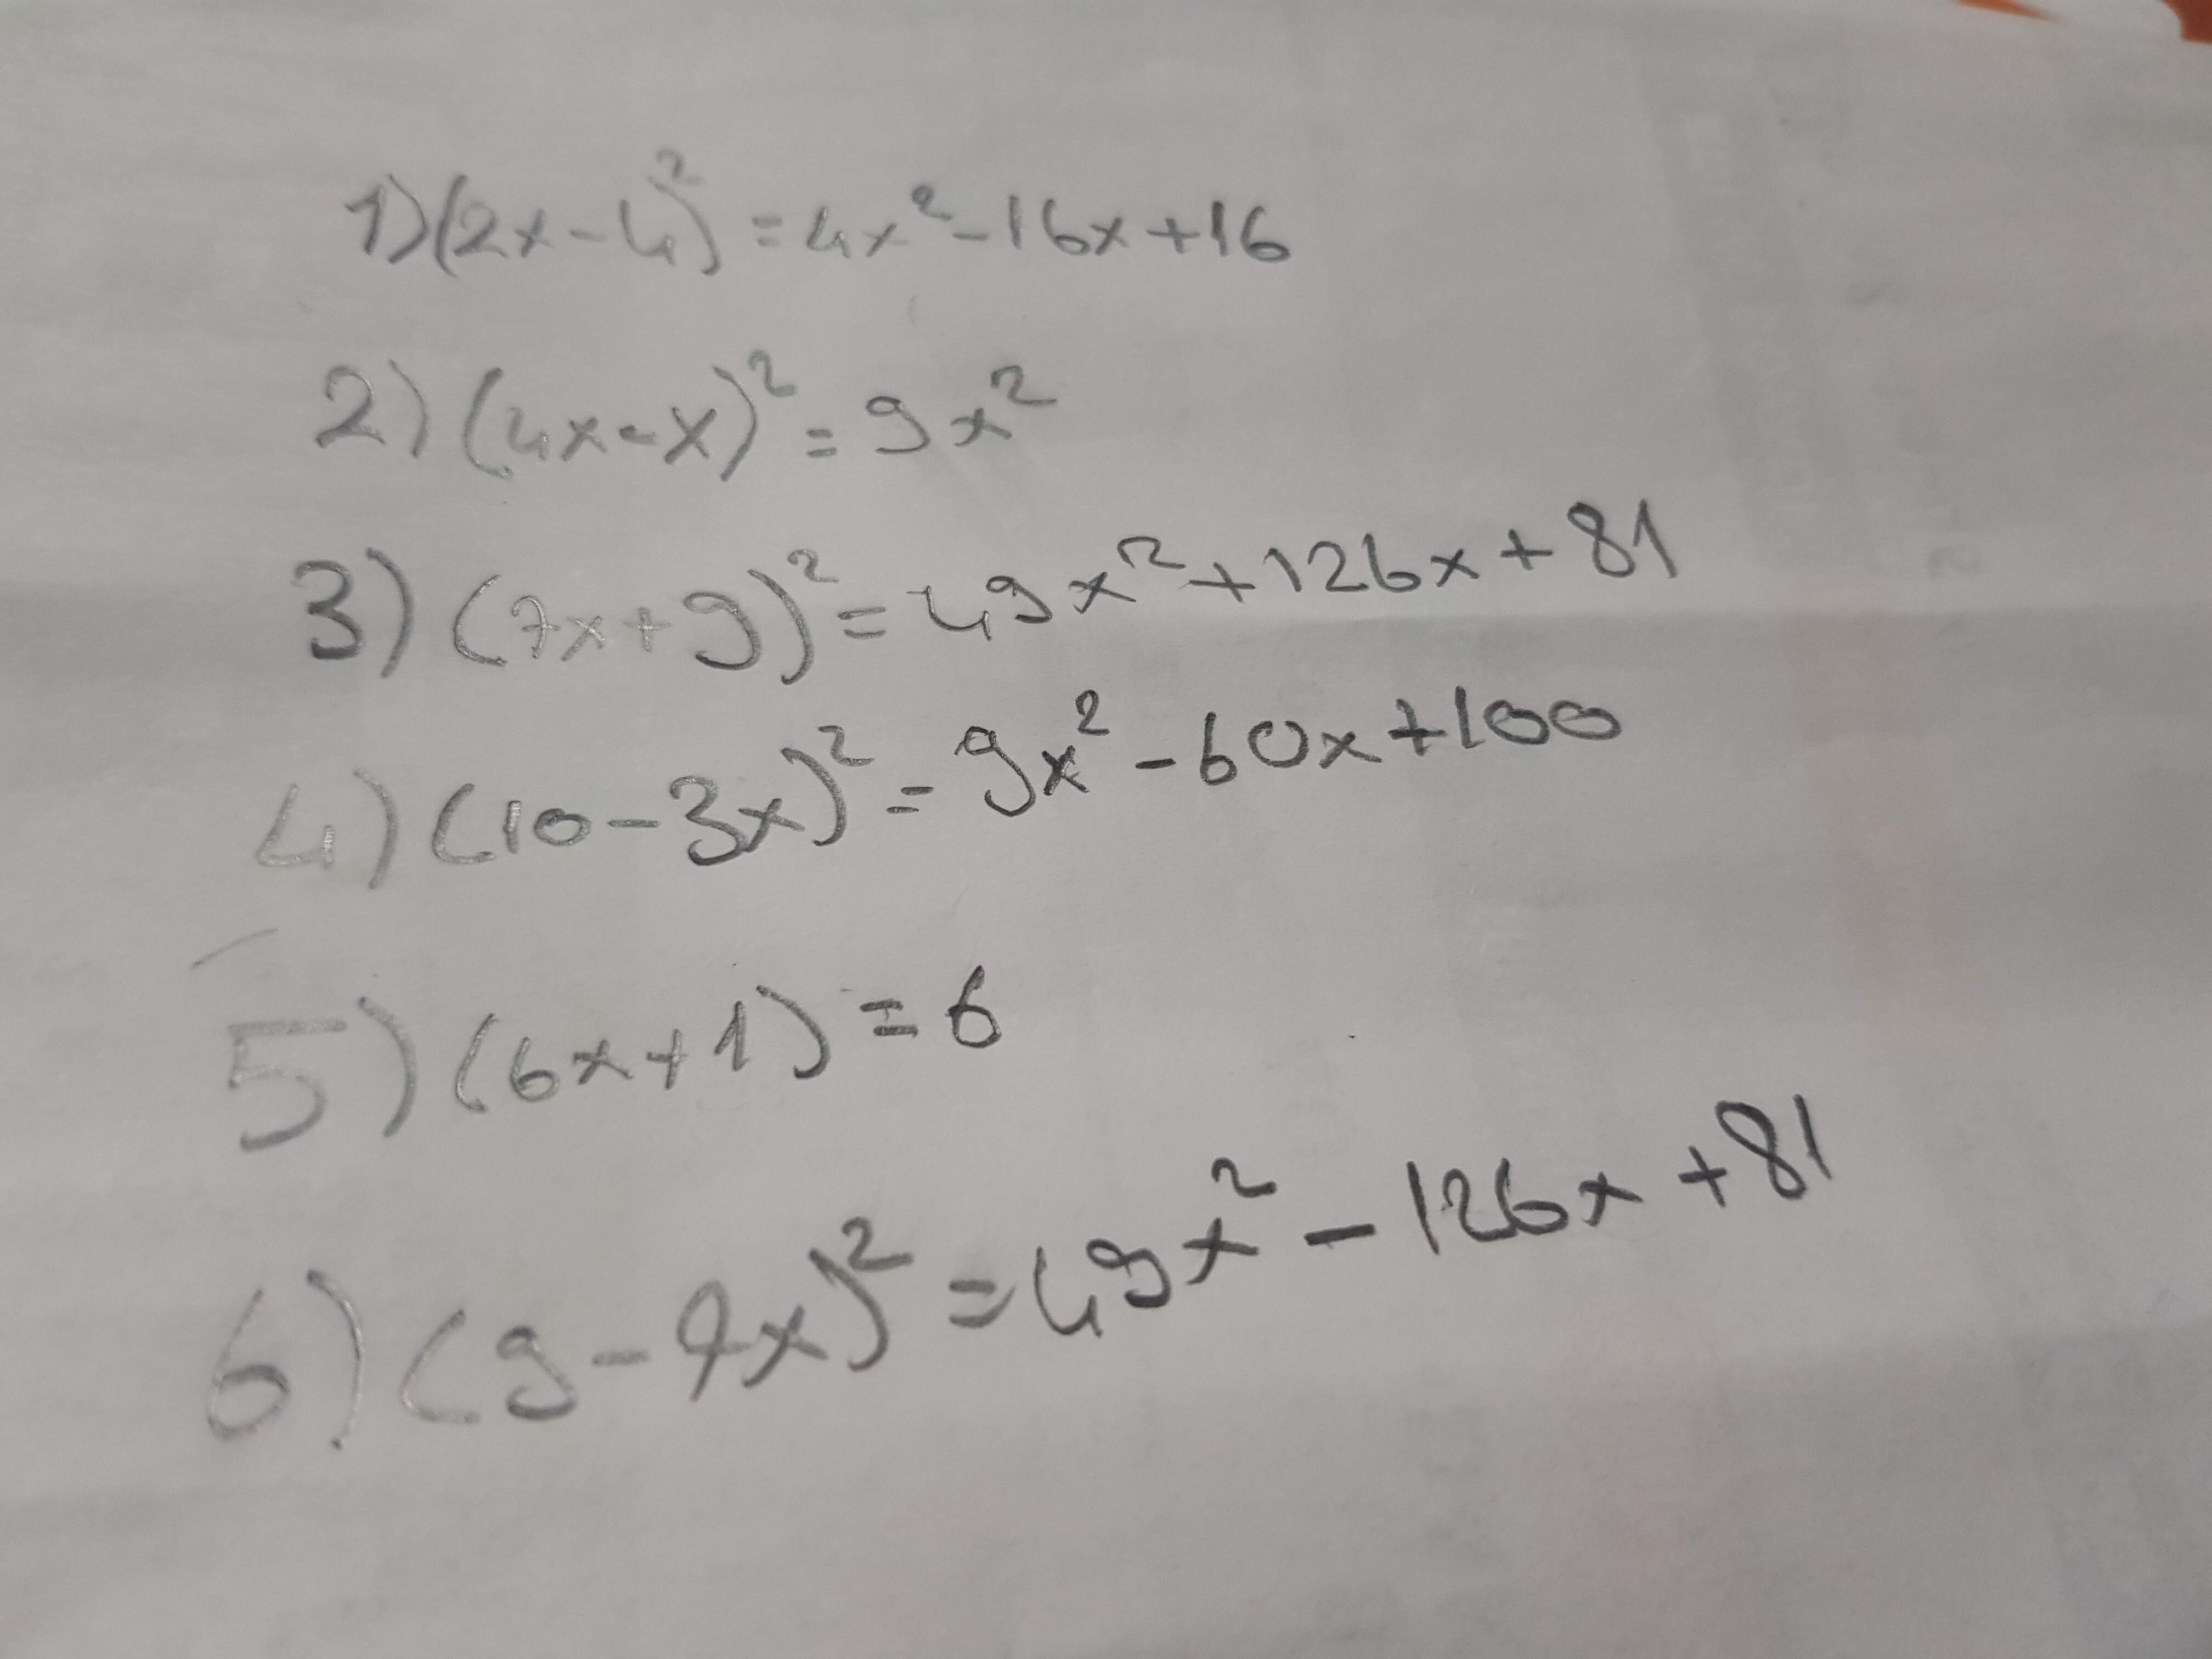 1) (2x-4)² = 4x² - 16x + 16
2) (4x-x)² = 9x²
3) (7x+9)² = 49x² + 126x + 81
4) (10-3x)² = 9x² - 60x + 100
5) (6x+1) = 6
6) (9-7x)² = 49x² - 126x + 81